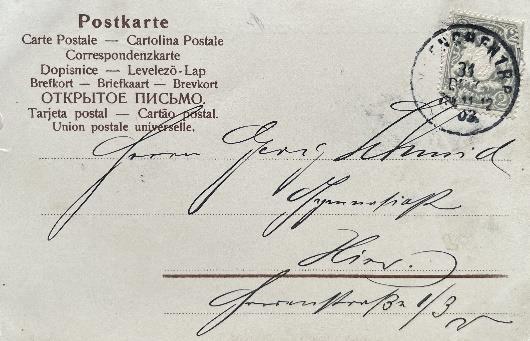 Postkarte
Carte Postale — Cartolina Postale
Correspondenzkarte
Dopisnice — Levelező-Lap
Brefkort — Briefkaart — Brevkort
ОТКРЫТОЕ ПИСЬМО.
Tarjeta postal — Cartão postal.
Union postale universelle.
31
DEZ
11-12
02
Herrn Georg Schmid
Gymnasiast
Hier.
Herrenstraße 1/3